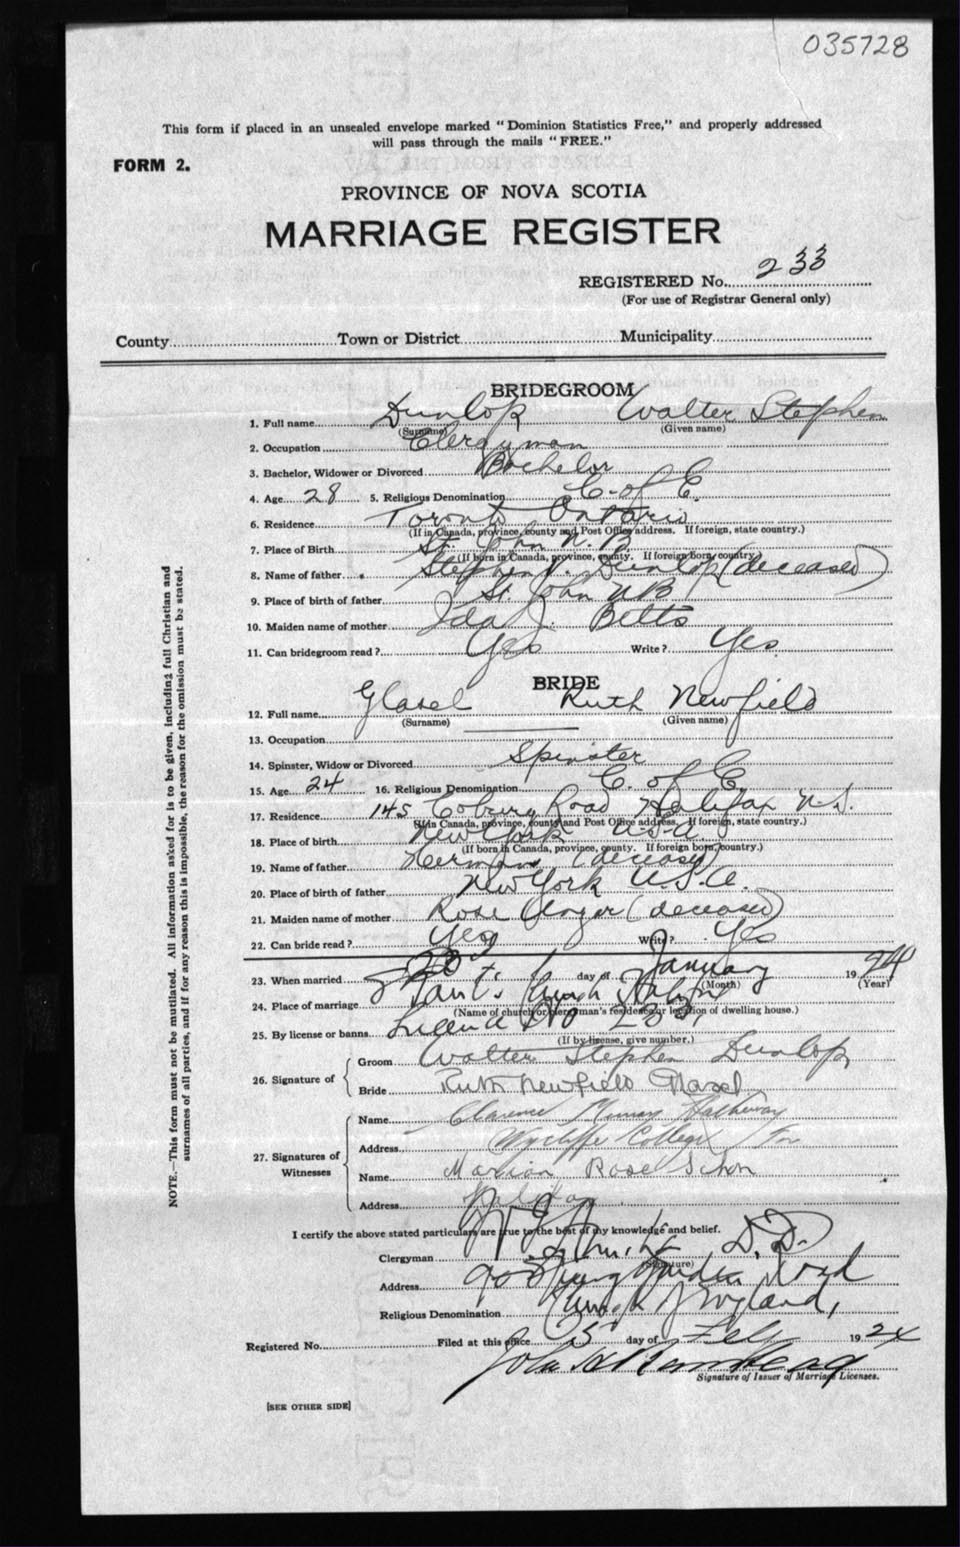 035728
This form if placed in an unsealed envelope marked "Dominion Statistics Free," and properly addressed
will pass through the mails "FREE."
FORM 2.
PROVINCE OF NOVA SCOTIA
MARRIAGE REGISTER
REGISTERED No. 233
(For use of Registrar General only)
County Town or District Municipality
BRIDEGROOM
1. Full name Dunlop Walter Stephen
(Surname) (Given name)
2. Occupation Clergyman
3. Bachelor, Widower or Divorced Bachelor
4. Age 28 5. Religious Denomination C. of E.
6. Residence Toronto Ontario
(If in Canada, province, county and Post Office address. If foreign, state country.)
7. Place of Birth St. John N.B.
(If born in Canada, province, county. If foreign born, country.)
8. Name of father Stephen Dunlop (deceased)
9. Place of birth of father St. John N B
10. Maiden name of mother Ida J. Betts
11. Can bridegroom read? Yes Write? Yes
BRIDE
12. Full name Glasel Ruth Newfield
(Surname) (Given name)
13. Occupation
14. Spinster, Widow or Divorced Spinster
15. Age 24 16. Religious Denomination C. of E
17. Residence 145 Coburg Road Halifax N.S.
(If in Canada, province, county and Post Office address. If foreign, state country.)
18. Place of birth New York U.S.A.
(If born in Canada, province, county. If foreign born, country.)
19. Name of father Herman (deceased)
20. Place of birth of father New York U.S.A.
21. Maiden name of mother Rose Unger (deceased)
22. Can bride read? Yes Write? Yes
23. When married day of January 1924
(Month) (Year)
24. Place of marriage St Paul's Church Halifax
(Name of church or clergyman's residence or location of dwelling house.)
25. By license or banns License No
(If by license, give number.)
26. Signature of Groom Walter Stephen Dunlop
Bride Ruth Newfield Glasel
27. Signatures of Witnesses Name Clarence Murray
Address Wycliffe College Tor
Name Marion Rose
Address
I certify the above stated particulars are true to the best of my knowledge and belief.
Clergyman D.D.
(Signature)
Address 90 Spring Garden Road
Religious Denomination Church of England,
Registered No. Filed at this office 5 day of Feb 1924
Signature of Issuer of Marriage Licenses.
[SEE OTHER SIDE]
NOTE.—This form must not be mutilated. All information asked for is to be given, including full Christian and
surnames of all parties, and if for any reason this is impossible, the reason for the omission must be stated.